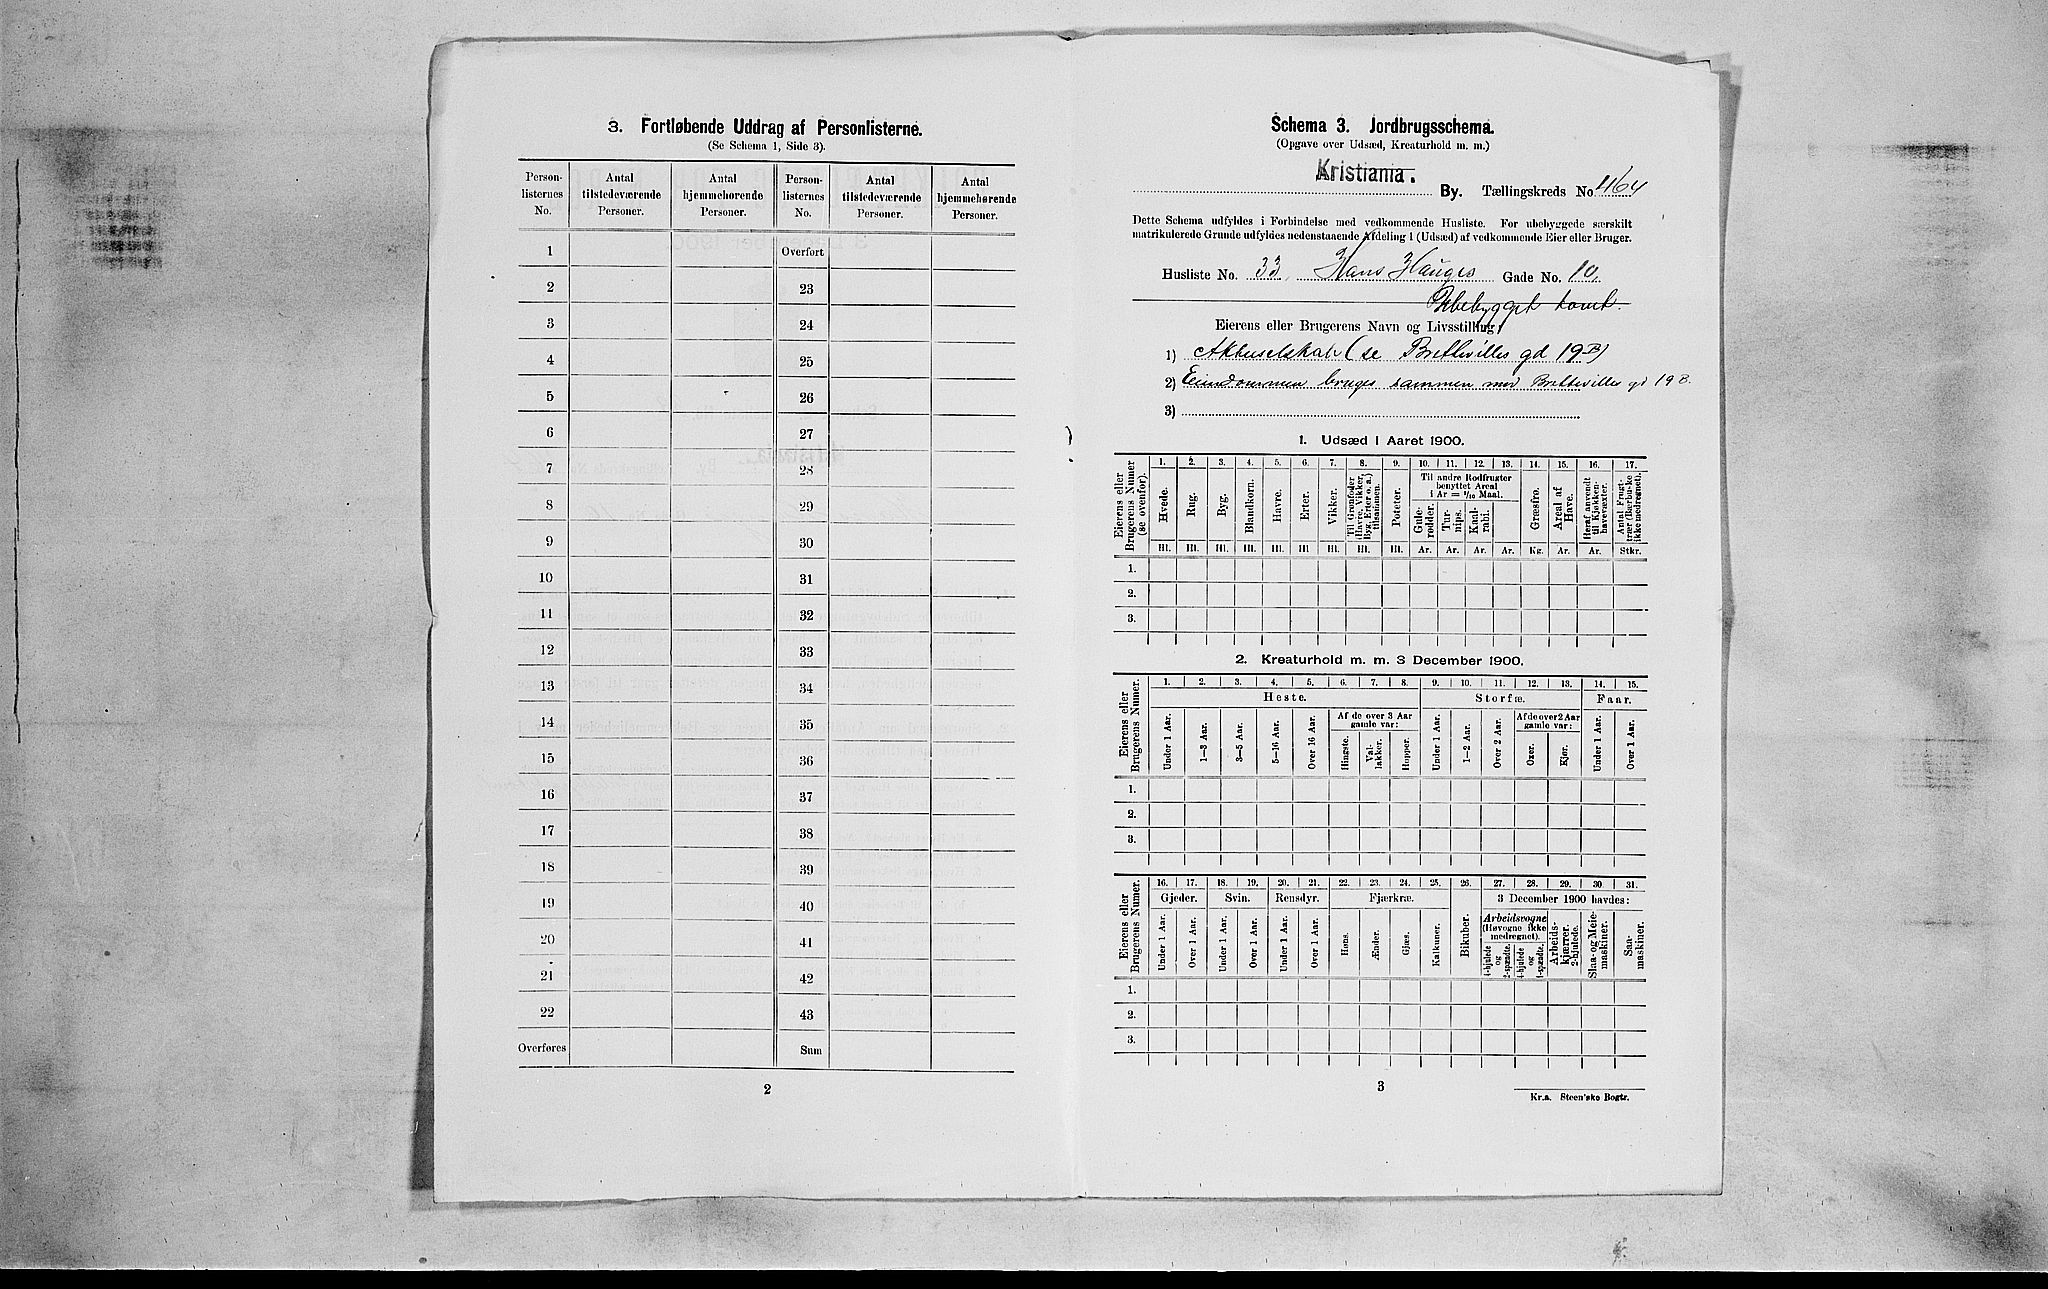 3. Fortløbende Uddrag af Personlisterne.
(Se Schema 1, Side 3).
Person-listernes No. Antal tilstedeværende Personer. Antal hjemmehørende Personer. Person-listernes No. Antal tilstedeværende Personer. Antal hjemmehørende Personer.
1 Overført
2 23
3 24
4 25
5 26
6 27
7 28
8 29
9 30
10 31
11 32
12 33
13 34
14 35
15 36
16 37
17 38
18 39
19 40
20 41
21 42
22 43
Overføres Sum
2
Schema 3. Jordbrugsschema.
(Opgave over Udsæd, Kreaturhold m. m.)
Kristiania. By. Tællingskreds No. 164
Dette Schema udfyldes i Forbindelse med vedkommende Husliste. For ubebyggede særskilt
matrikulerede Grunde udfyldes nedenstaaende Afdeling 1 (Udsæd) af vedkommende Eier eller Bruger.
Husliste No. 33 Hans Hauges Gade No. 10.
Ubebygget tomt.
Eierens eller Brugerens Navn og Livsstilling:
1) Aktieselskab (se Brettevilles gd 19B)
2) Eiendommen bruges sammen med Brettevilles gd 19 B.
3)
1. Udsæd i Aaret 1900.
Eierens eller Brugerens Numer (se ovenfor). 1. 2. 3. 4. 5. 6. 7. 8. 9. 10. 11. 12. 13. 14. 15. 16. 17.
Til andre Rodfrugter benyttet Areal i Ar = 1/10 Maal.
Hvede. Rug. Byg. Blandkorn. Havre. Erter. Vikker. Til Grønfoder (Havre, Vikker, Byg, Erter o. a.) tilsammen. Poteter. Gulerødder. Turnips. Kaalrabi. Græsfrø. Areal af Have. Heraf anvendt til Kjøkkenhavevæxter. Antal Frugttrær (Bærbuske ikke medregnet).
Hl. Hl. Hl. Hl. Hl. Hl. Hl. Hl. Hl. Ar. Ar. Ar. Ar. Kg. Ar. Ar. Stkr.
1.
2.
3.
2. Kreaturhold m. m. 3 December 1900.
Eierens eller Brugerens Numer. 1. 2. 3. 4. 5. 6. 7. 8. 9. 10. 11. 12. 13. 14. 15.
Heste. Storfæ. Faar.
Af de over 3 Aar gamle var: Af de over 2 Aar gamle var:
Under 1 Aar. 1—3 Aar. 3—5 Aar. 5—16 Aar. Over 16 Aar. Hingste. Vallakker. Hopper. Under 1 Aar. 1—2 Aar. Over 2 Aar. Oxer. Kjør. Under 1 Aar. Over 1 Aar.
1.
2.
3.
Eierens eller Brugerens Numer. 16. 17. 18. 19. 20. 21. 22. 23. 24. 25. 26. 27. 28. 29. 30. 31.
Gjeder. Svin. Rensdyr. Fjærkræ. 3 December 1900 havdes:
Arbeidsvogne (Høvogne ikke medregnet).
Under 1 Aar. Over 1 Aar. Under 1 Aar. Over 1 Aar. Under 1 Aar. Over 1 Aar. Høns. Ænder. Gjæs. Kalkuner. Bikuber. 4-hjulede og 2-spændte. 4-hjulede og 1-spændte. Arbeidskjærrer, 2-hjulede. Slaa- og Meiemaskiner. Saamaskiner.
1.
2.
3.
3
Kr.a. Steen'ske Bogtr.